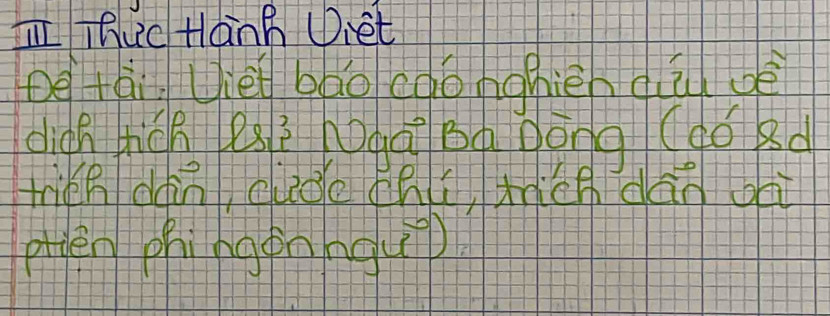 III Thực Hành Viết
Đề tài: Viết báo cáo nghiên cứu về
dich tích lsử Ngã Ba Dòng (có sd
trích dẫn, cước chú, trích dẫn và
phiên phi ngôn ngữ)